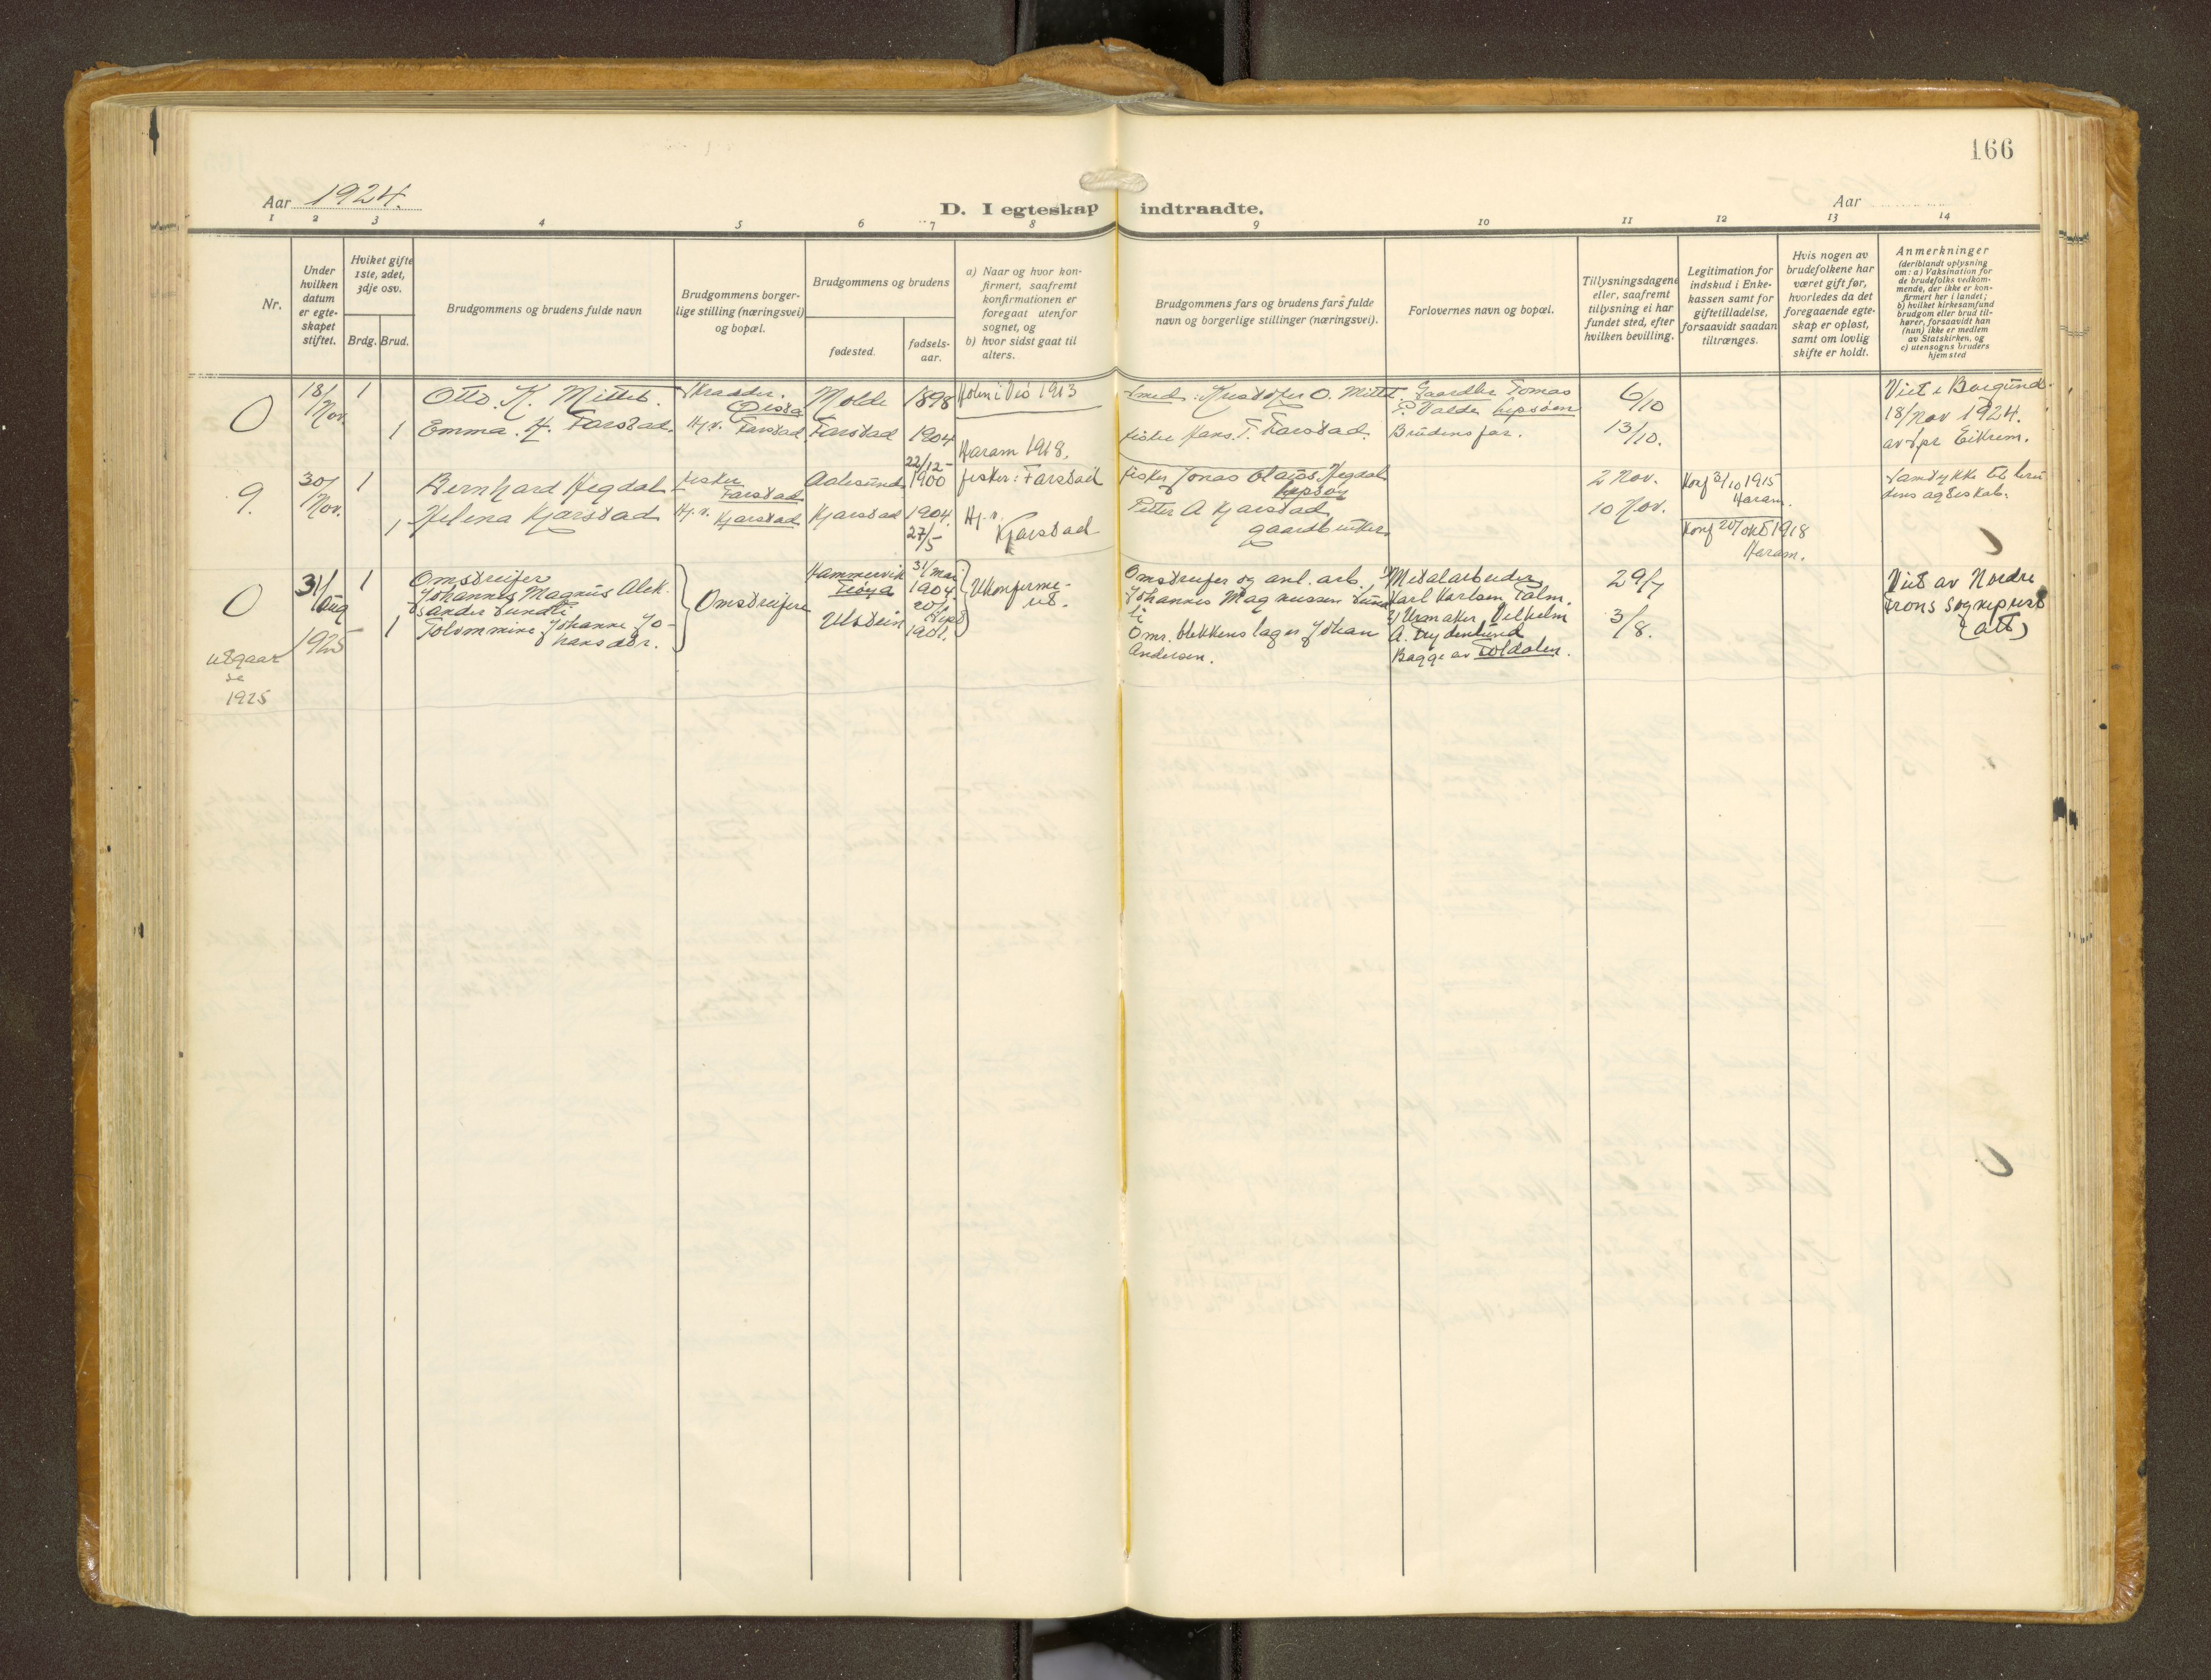 166
Aar 1924.
D. I egteskap indtraadte.
Aar
1 2 3 4 5 6 7 8 9 10 11 12 13 14
Nr.
Under
hvilken
datum
er egte-
skapet
stiftet.
Hvilket gifte
1ste, 2det,
3dje osv.
Brdg. Brud.
Brudgommens og brudens fulde navn
Brudgommens borger-
lige stilling (næringsvei)
og bopæl.
Brudgommens og brudens
fødested.
fødsels-
aar.
a) Naar og hvor kon-
firmert, saafremt
konfirmationen er
foregaat utenfor
sognet, og
b) hvor sidst gaat til
alters.
Brudgommens fars og brudens fars fulde
navn og borgerlige stillinger (næringsvei).
Forlovernes navn og bopæl.
Tillysningsdagene
eller, saafremt
tillysning ei har
fundet sted, efter
hvilken bevilling.
Legitimation for
indskud i Enke-
kassen samt for
giftetilladelse,
forsaavidt saadan
tiltrænges.
Hvis nogen av
brudefolkene har
været gift før,
hvorledes da det
foregaaende egte-
skap er opløst,
samt om lovlig
skifte er holdt.
Anmerkninger
(deriblandt oplysning
om: a) Vaksination for
de brudefolks vedkom-
mende, der ikke er kon-
firmert her i landet;
b) hvilket kirkesamfund
brudgom eller brud til-
hører, forsaavidt han
(hun) ikke er medlem
av Statskirken, og
c) utensogns bruders
hjemsted
0
18/
Nov.
1
Otto. K. Mittet.
Skrædder.
Molde
1898
Holm i Veø 1913
Smed: Kristofer O. Mittet.
Gaardbr Tomas
P. Valde Lepsøen
6/10
Viet i Borgund.
18/Nov 1924.
av Spr Eikrem.
1
Emma. H. Farstad.
Hj. v. Farstad
Farstad
1904
Haram 1918.
fisker Hans. T. Farstad.
Brudens far.
13/10.
9.
30/
Nov.
1
Bernhard Hegdal
fisker
Farstad
Aalesund
22/12-
1900
fisker: Farstad
fisker Jonas Olaus. Hegdal
Lepsøy
2 Nov.
Konf 3/10 1915
Haram
Samtykke til bru
dens agteskab.
1
Helena Kjærstad
Hj. v. Kjærstad
Kjærstad
1904.
27/5
Hj. v.
Kjærstad
Petter A Kjærstad
gaardbruker
10 Nov.
Konf 20/okt 1918
Haram.
0
utgaar
se
1925
31/
Aug
1925
1
Omstreifer
Johannes Magnus Alek.
sander Sundli
1
Tolommine Johanne Jo-
hansdtr.
Omstreifere
Hammervik
Frøya
31/mai
1904.
Utstein
20/
Sept
1901.
Ukonferme-
ut.
Omstreifer og anl. arb.
Johannes Magnussen Sund
li
Omr. blekkenslager Johan
Andersen.
1) Metalarbeider
Karl Karlsen Talm.
2) Urmaker Vilhelm
A. Frydenlund
Bagge av Foldalen.
29/7
3/8.
Viet av Nordre
Frons sogneprest
(att)